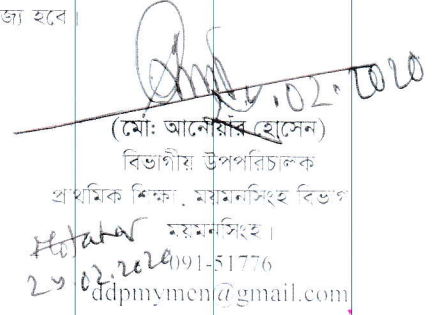 জ্য হবে।
.02.2020
(মো: আনোয়ার হোসেন)
বিভাগীয় উপপরিচালক
প্রাথমিক শিক্ষা, ময়মনসিংহ বিভাগ
ময়মনসিংহ।
091-51776
ddpmymen@gmail.com